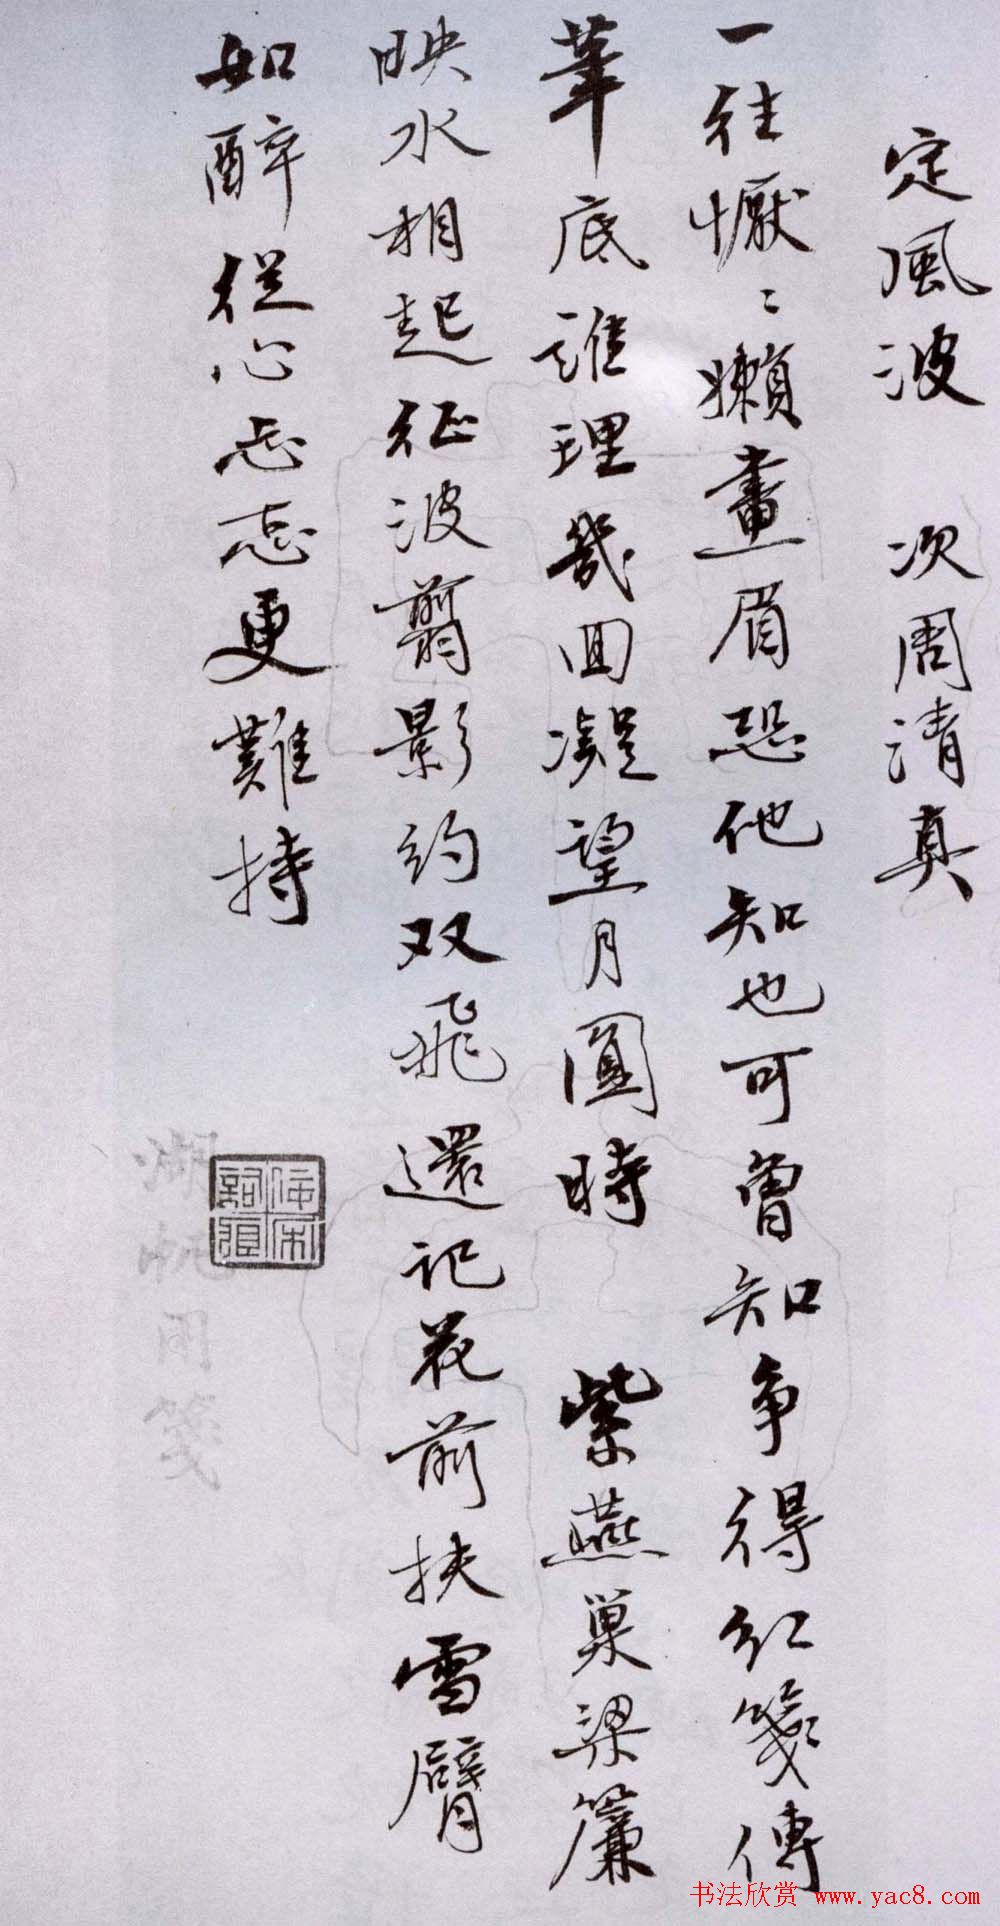 定風波 次周清真
一往懨〻嬾畫眉恐他知也可曾知争得紅箋傳
華底誰理幾回凝望月圓時 紫燕巢梁簾
映水相起征波翦影約双飛還記花前扶雪臂
如醉從心忘忘更難持
佞宋詞痕
湖帆同箋
书法欣赏 www.yac8.com